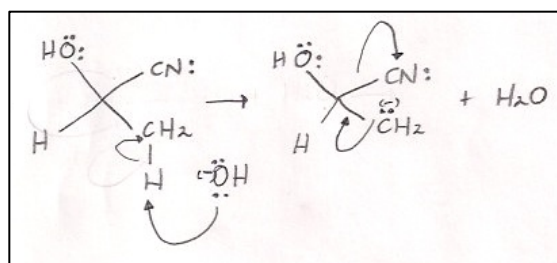 HÖ:
CN:
H
CH2
H
(-)ÖH
→
HÖ:
CN:
H
(-)
CH2
+ H2O